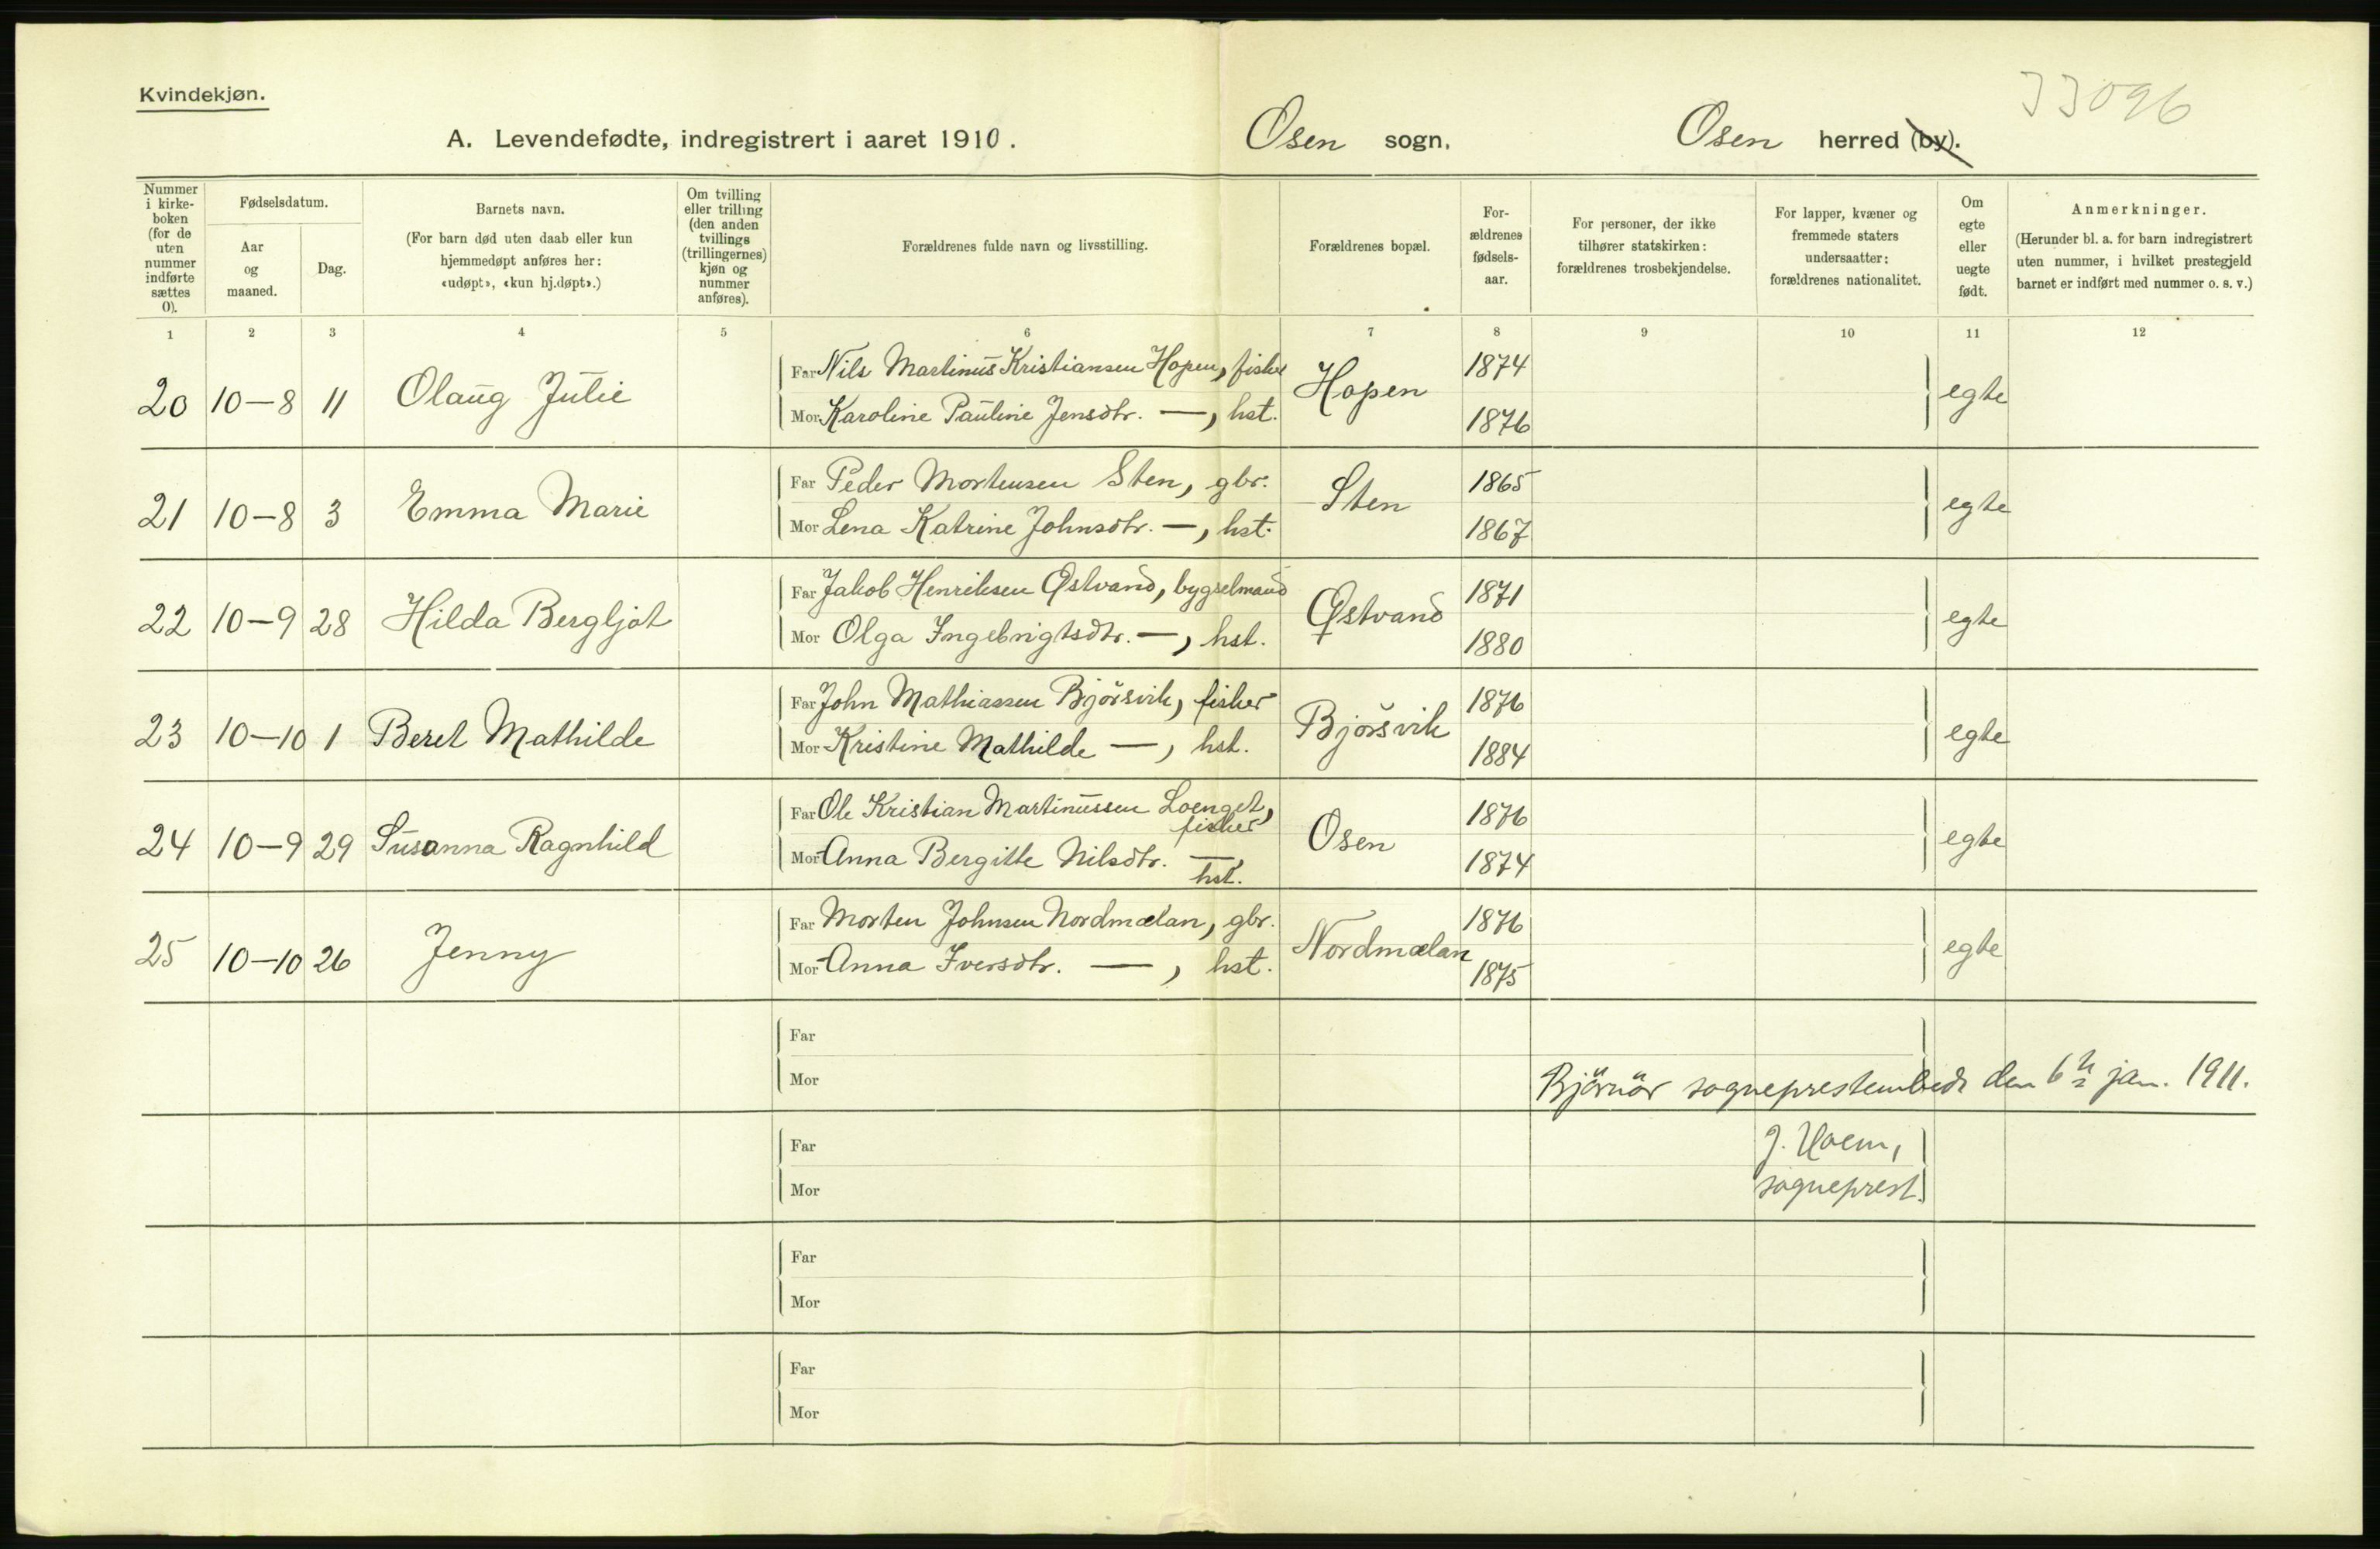 Kvindekjøn.
33096
A. Levendefødte, indregistrert i aaret 1910. Osen sogn. Osen herred (by).
Nummer i kirke-boken (for de uten nummer indførte sættes 0).
Fødselsdatum.
Aar og maaned.
Dag.
Barnets navn.
(For barn død uten daab eller kun hjemmedøpt anføres her: «udøpt», «kun hj.døpt».)
Om tvilling eller trilling (den anden tvillings (trillingernes) kjøn og nummer anføres).
Forældrenes fulde navn og livsstilling.
Forældrenes bopæl.
For-ældrenes fødsels-aar.
For personer, der ikke tilhører statskirken: forældrenes trosbekjendelse.
For lapper, kvæner og fremmede staters undersaatter: forældrenes nationalitet.
Om egte eller uegte født.
Anmerkninger.
(Herunder bl. a. for barn indregistrert uten nummer, i hvilket prestegjeld barnet er indført med nummer o. s. v.)
1 2 3 4 5 6 7 8 9 10 11 12
20 10-8 11 Olaug Julie
Far Nils Martinus Kristiansen Hopen, fisker Hopen 1874 egte
Mor Karoline Pauline Jensdtr. —, hst. 1876
21 10-8 3 Emma Marie
Far Peder Mortensen Sten, gbr. Sten 1865 egte
Mor Lena Katrine Johnsdtr. —, hst. 1867
22 10-9 28 Hilda Bergljot
Far Jakob Henriksen Østvand, bygselmand Østvand 1871 egte
Mor Olga Ingebrigtsdtr. —, hst. 1880
23 10-10 1 Beret Mathilde
Far John Mathiassen Bjørsvik, fisker Bjørsvik 1876 egte
Mor Kristine Mathilde —, hst. 1884
24 10-9 29 Susanna Ragnhild
Far Ole Kristian Martinussen Loenget, fisker Osen 1876 egte
Mor Anna Bergitte Nilsdtr. —, hst. 1874
25 10-10 26 Jenny
Far Morten Johnsen Nordmælan, gbr. Nordmælan 1876 egte
Mor Anna Iversdtr. —, hst. 1875
Far
Mor
Bjørnør sogneprestembede den 6te jan. 1911.
Far
J. Hoem,
Mor
sogneprest.
Far
Mor
Far
Mor